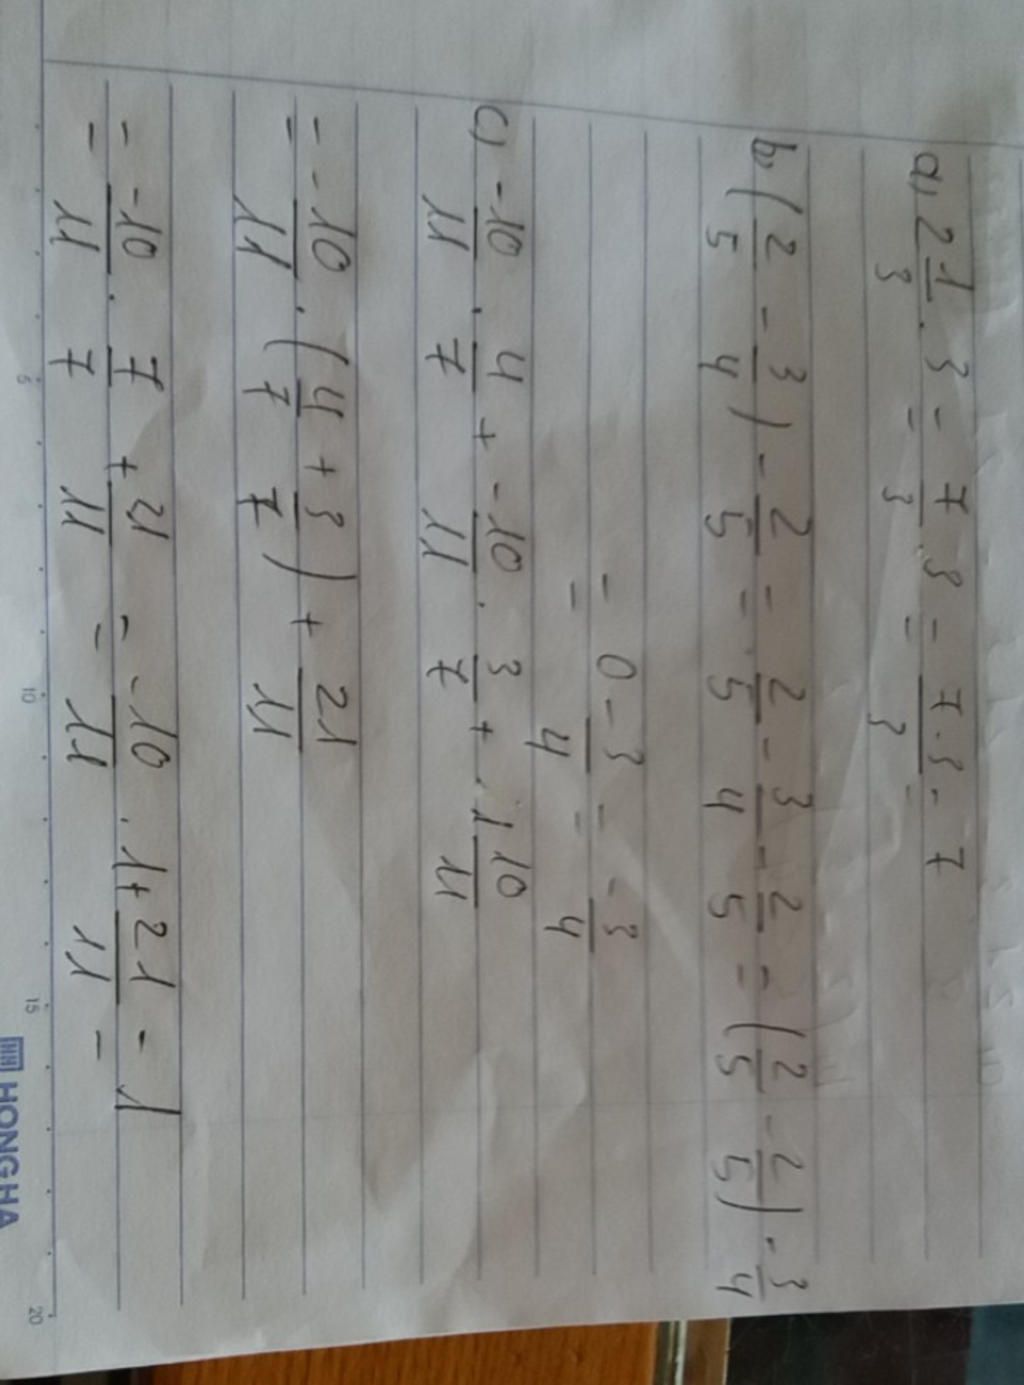 a, 2 1/3 . 3 = 7/3 . 3 = 7.3/3 = 7
b, (2/5 - 3/4) - 2/5 = 2/5 - 3/4 - 2/5 = (2/5 - 2/5) - 3/4
= 0 - 3/4 = -3/4
c, -10/11 . 4/7 + -10/11 . 3/7 + 1 10/11
= -10/11 . (4/7 + 3/7) + 21/11
= -10/11 . 7/7 + 21/11 = -10/11 . 1 + 21/11 = 1
5 10 15 20
HH HONG HA